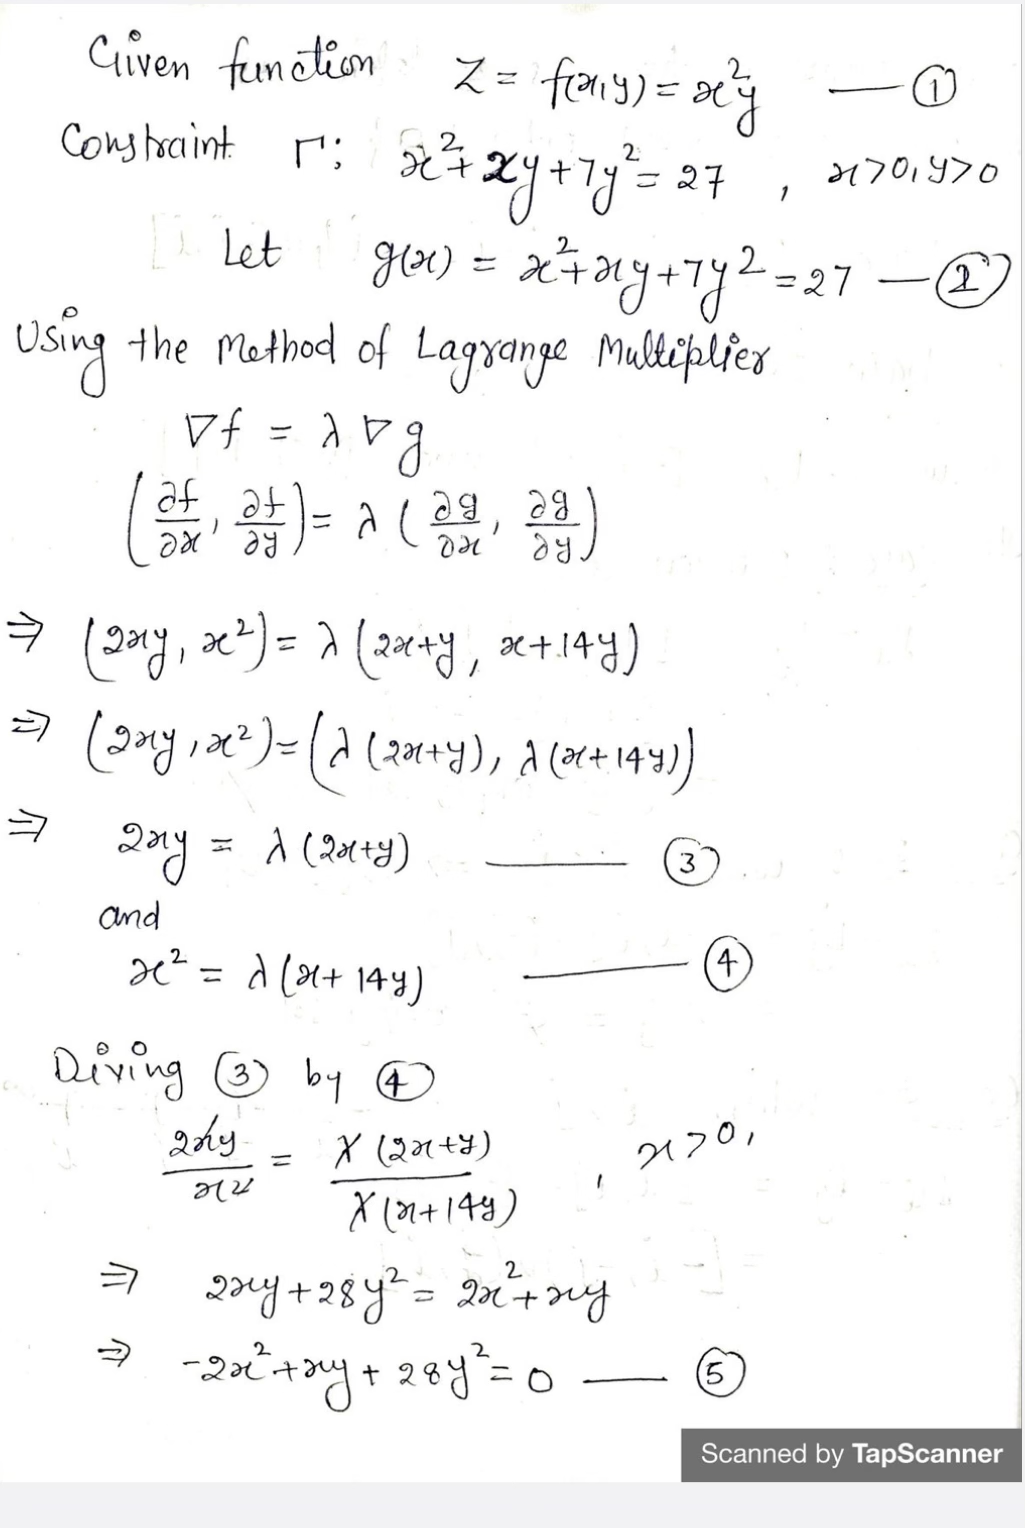 Given function Z = f(x,y) = x²y — ①
Constraint Γ; x²+xy+7y² = 27 , x>0,y>0
Let g(x) = x²+xy+7y² = 27 — ②
Using the Method of Lagrange Multiplier
∇f = λ∇g
(∂f/∂x, ∂f/∂y) = λ(∂g/∂x, ∂g/∂y)
⇒ (2xy, x²) = λ(2x+y, x+14y)
⇒ (2xy, x²) = (λ(2x+y), λ(x+14y))
⇒ 2xy = λ(2x+y) — ③
and
x² = λ(x+14y) — ④
Diving ③ by ④
2xy/x² = λ(2x+y)/λ(x+14y) , x>0,
⇒ 2xy+28y² = 2x²+xy
⇒ -2x²+xy+28y² = 0 — ⑤
Scanned by TapScanner